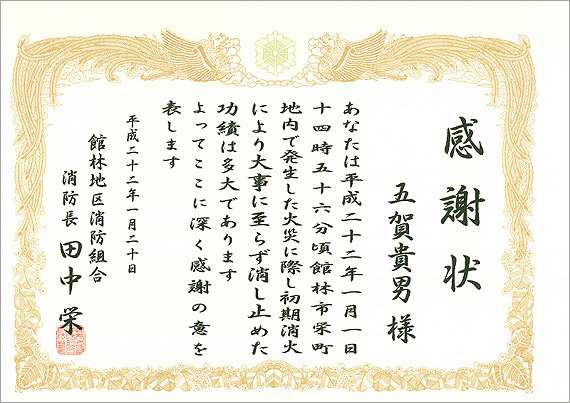 感謝状
五賀貴男様
あなたは平成二十二年一月一日
十四時五十六分頃館林市栄町
地内で発生した火災に際し初期消火
により大事に至らず消し止めた
功績は多大であります
よってここに深く感謝の意を
表します
平成二十二年一月二十日
館林地区消防組合
消防長 田中栄